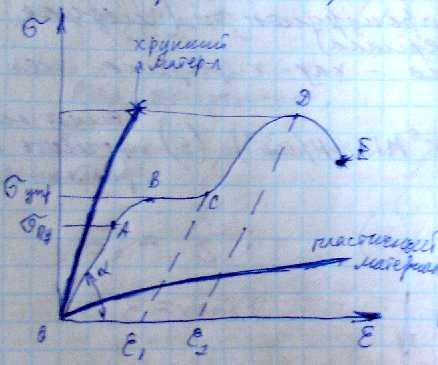 σ
хрупкий
матер-л
D
E
σупр
B
C
A
пластический
материал
α
0
ε1
ε2
ε